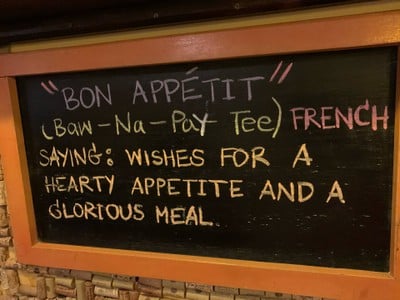 "BON APPÉTIT"
(Baw-Na-Pay Tee) FRENCH
SAYING: WISHES FOR A
HEARTY APPETITE AND A
GLORIOUS MEAL.